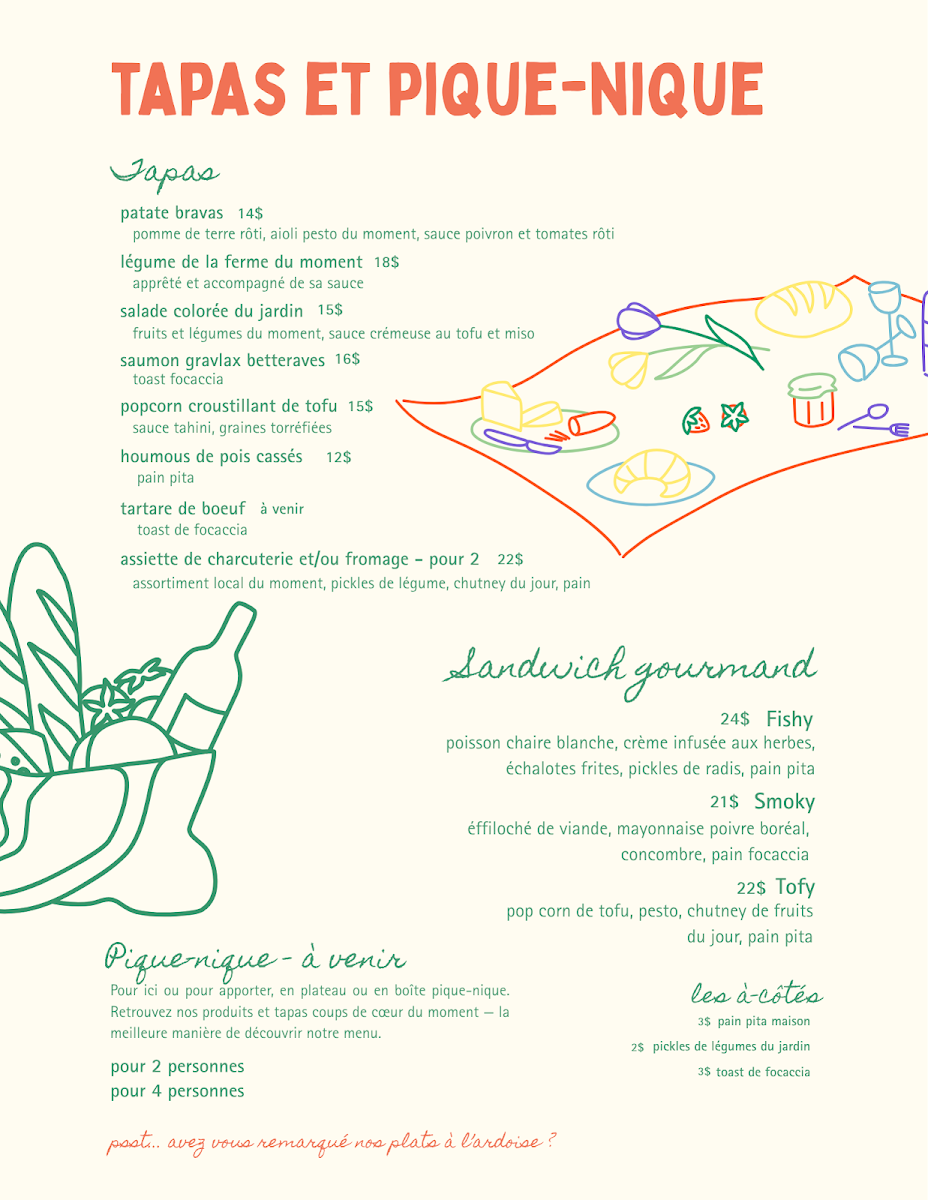 TAPAS ET PIQUE-NIQUE
Tapas
patate bravas 14$
pomme de terre rôti, aioli pesto du moment, sauce poivron et tomates rôti
légume de la ferme du moment 18$
apprêté et accompagné de sa sauce
salade colorée du jardin 15$
fruits et légumes du moment, sauce crémeuse au tofu et miso
saumon gravlax betteraves 16$
toast focaccia
popcorn croustillant de tofu 15$
sauce tahini, graines torréfiées
houmous de pois cassés 12$
pain pita
tartare de boeuf à venir
toast de focaccia
assiette de charcuterie et/ou fromage - pour 2 22$
assortiment local du moment, pickles de légume, chutney du jour, pain
Sandwich gourmand
24$ Fishy
poisson chaire blanche, crème infusée aux herbes,
échalotes frites, pickles de radis, pain pita
21$ Smoky
éffiloché de viande, mayonnaise poivre boréal,
concombre, pain focaccia
22$ Tofy
pop corn de tofu, pesto, chutney de fruits
du jour, pain pita
Pique-nique - à venir
Pour ici ou pour apporter, en plateau ou en boîte pique-nique.
Retrouvez nos produits et tapas coups de cœur du moment — la
meilleure manière de découvrir notre menu.
pour 2 personnes
pour 4 personnes
les à-côtés
3$ pain pita maison
2$ pickles de légumes du jardin
3$ toast de focaccia
psst... avez vous remarqué nos plats à l'ardoise ?